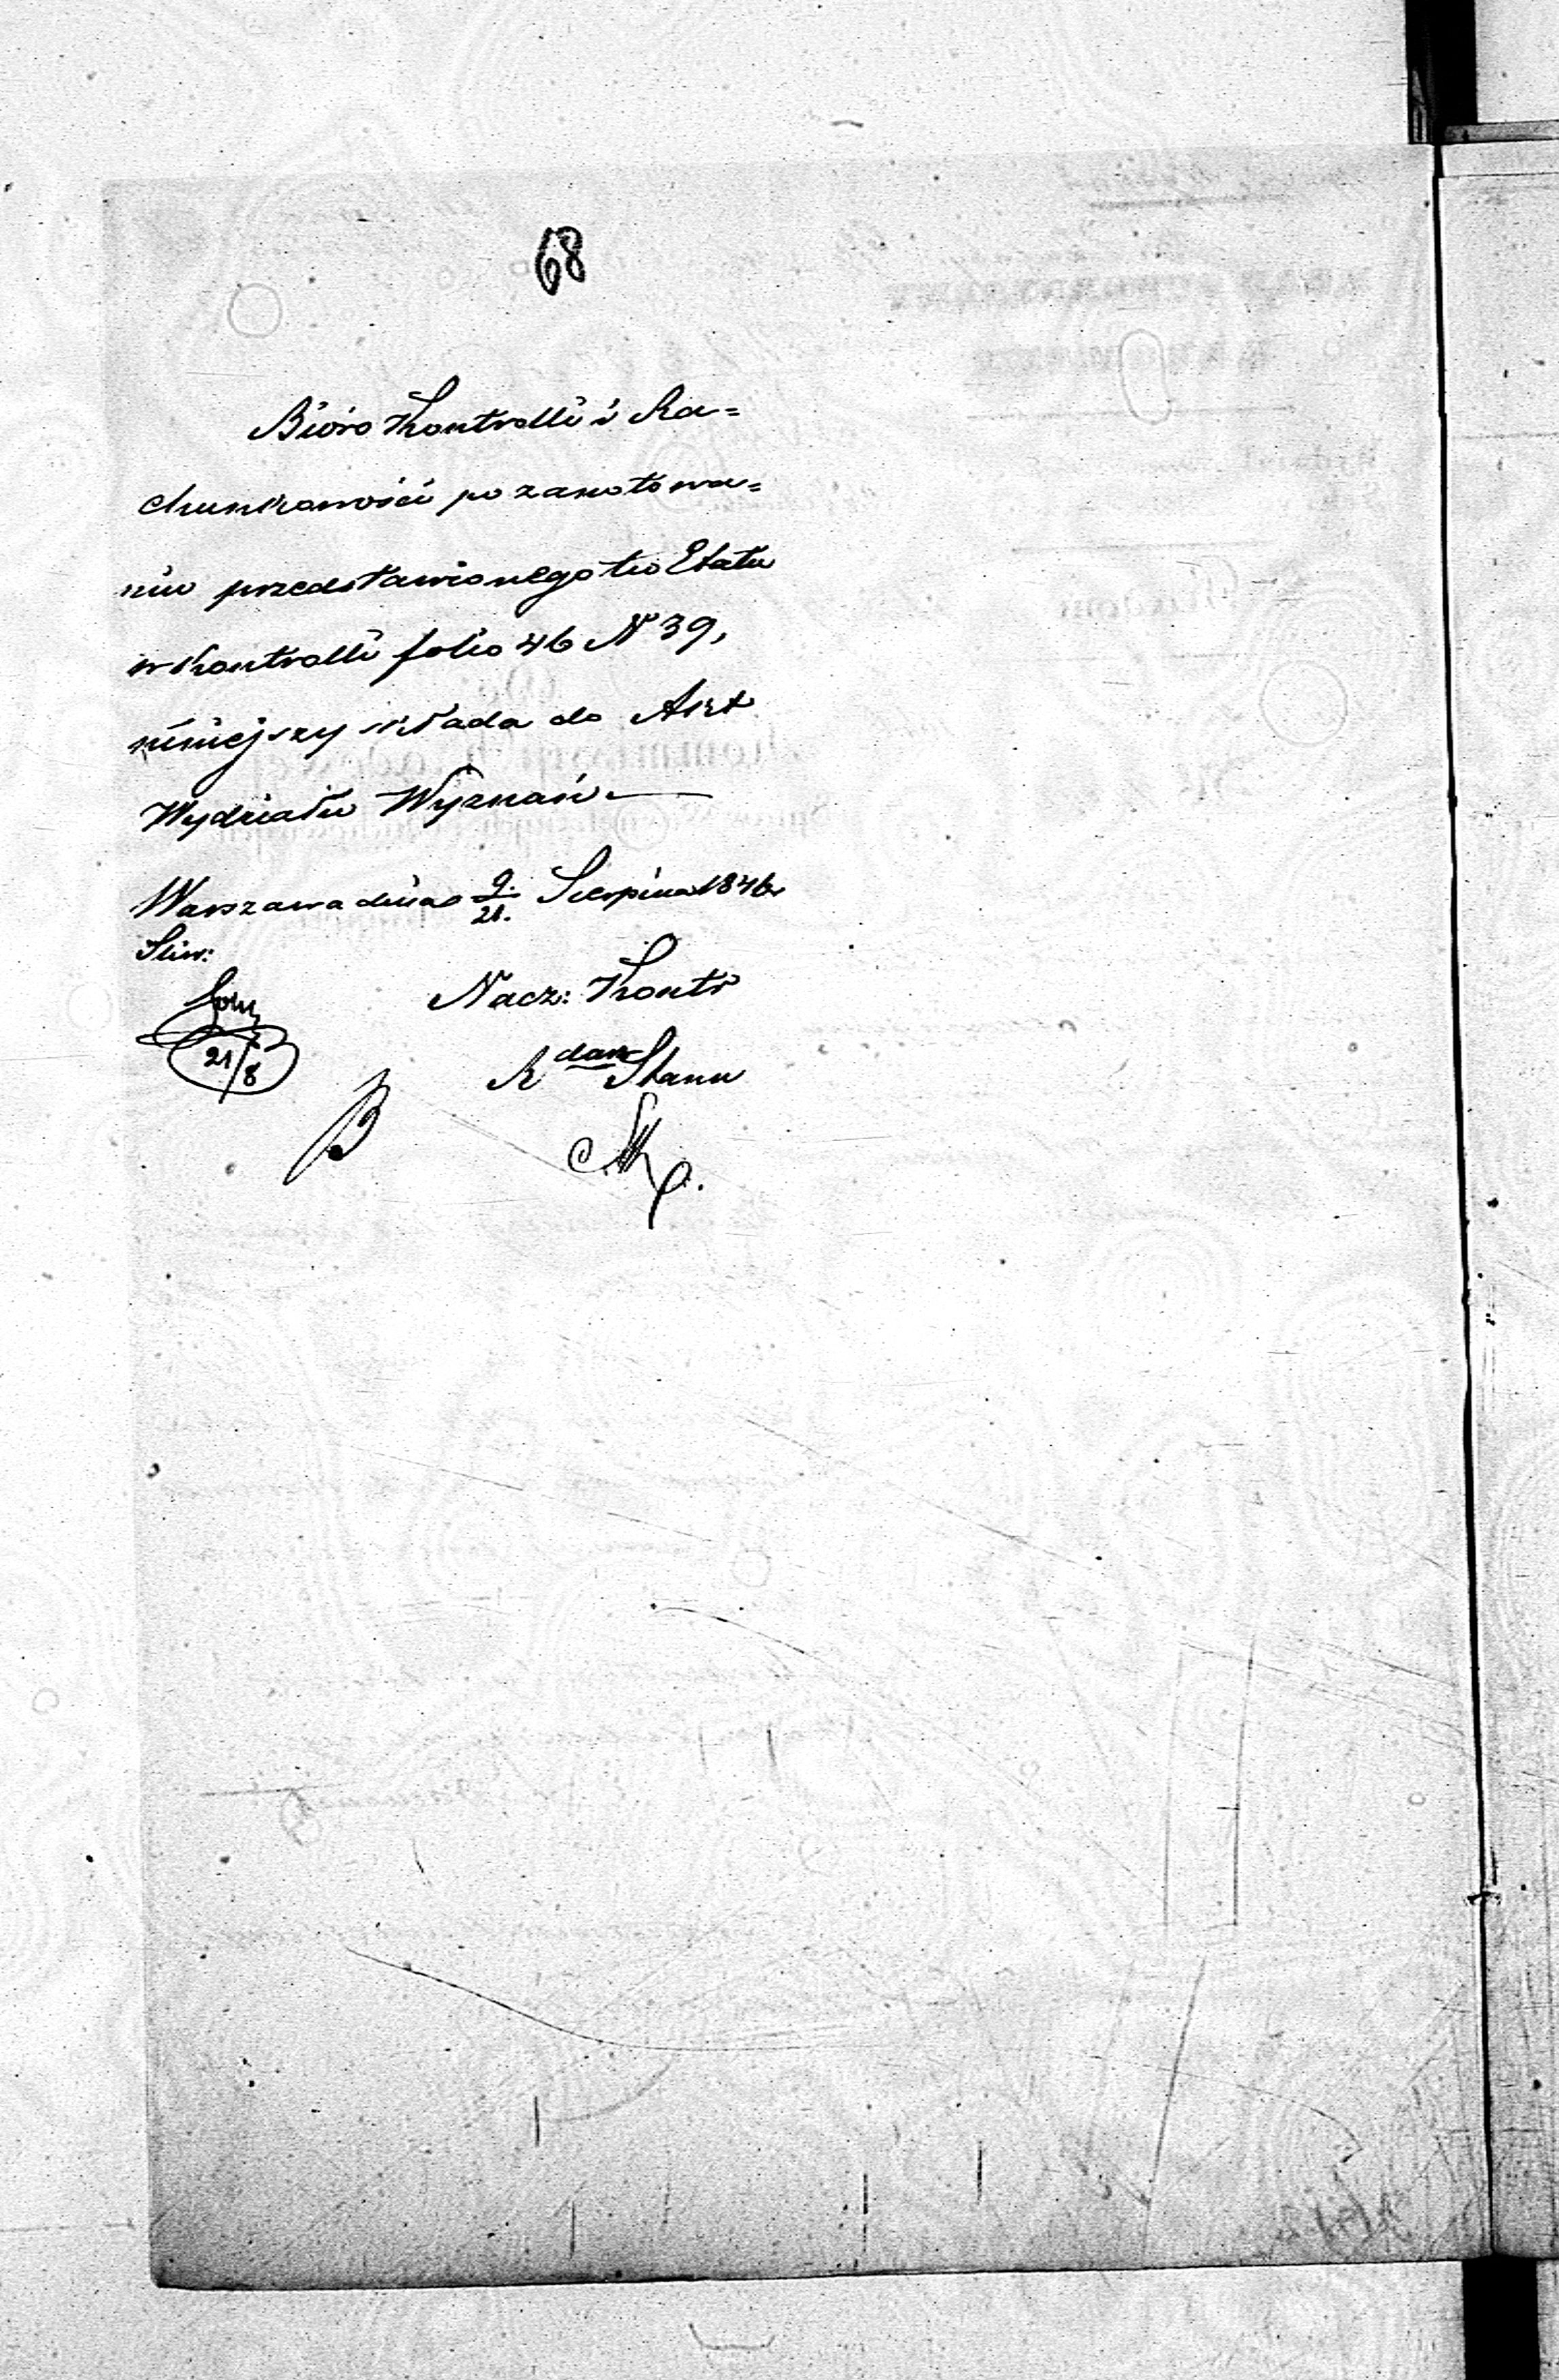 68
Bióro Kontrolli i Ra=
chunkowości po zanotowa=
niu przedstawionego tu Etatu
w Kontrolli folio 46 N 39,
niniejszy składa do Akt
Wydziału Wyznań.—
Warszawa dnia 9./21. Sierpnia 1846
Sliw:
Nacz: Kontr
21/8
R dca Stanu